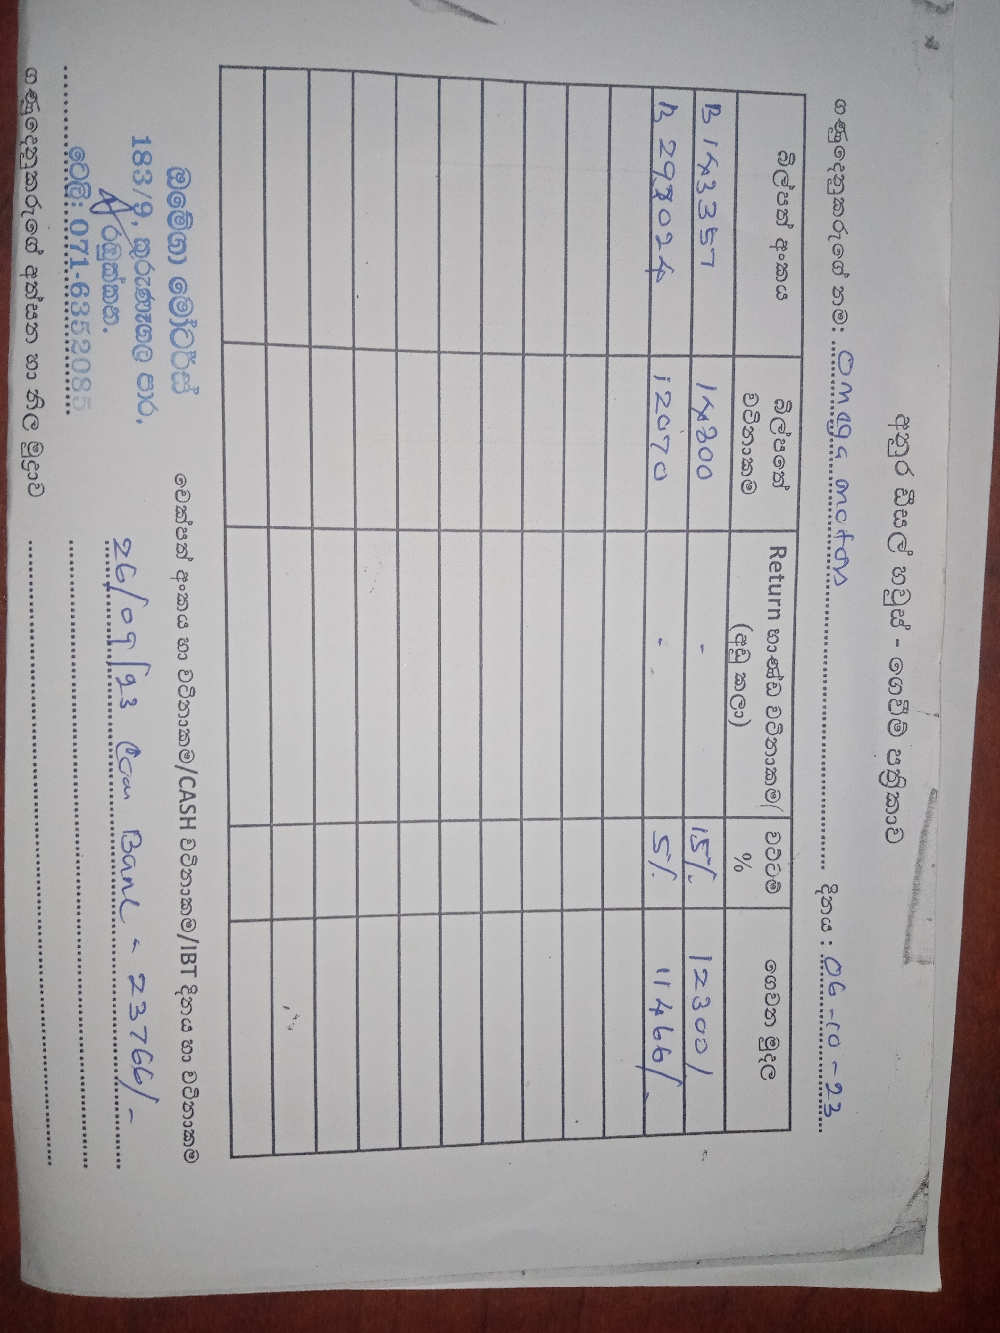 අනුර ඩීසල් හවුස් - ගෙවීම් පත්‍රිකාව
ගණුදෙනුකරුගේ නම: Omega motors දිනය : 06-10-23
බිල්පත් අංකය බිල්පතේ වටිනාකම Return භාණ්ඩ වටිනාකම/ (අඩු කලා) වට්ටම් % ගෙවන මුදල
B 143357 14800 - 15% 12300/
B 298024 12070 - 5% 11466/
ඔමේගා මෝටර්ස්
183/9, කුරුණෑගල පාර,
රඹුක්කන.
ටෙලි: 071-6352085
ගණුදෙනුකරුගේ අත්සන හා නිල මුද්‍රාව
චෙක්පත් අංකය හා වටිනාකම/CASH වටිනාකම/IBT දිනය හා වටිනාකම
26/09/23 Com Bank - 23766/-